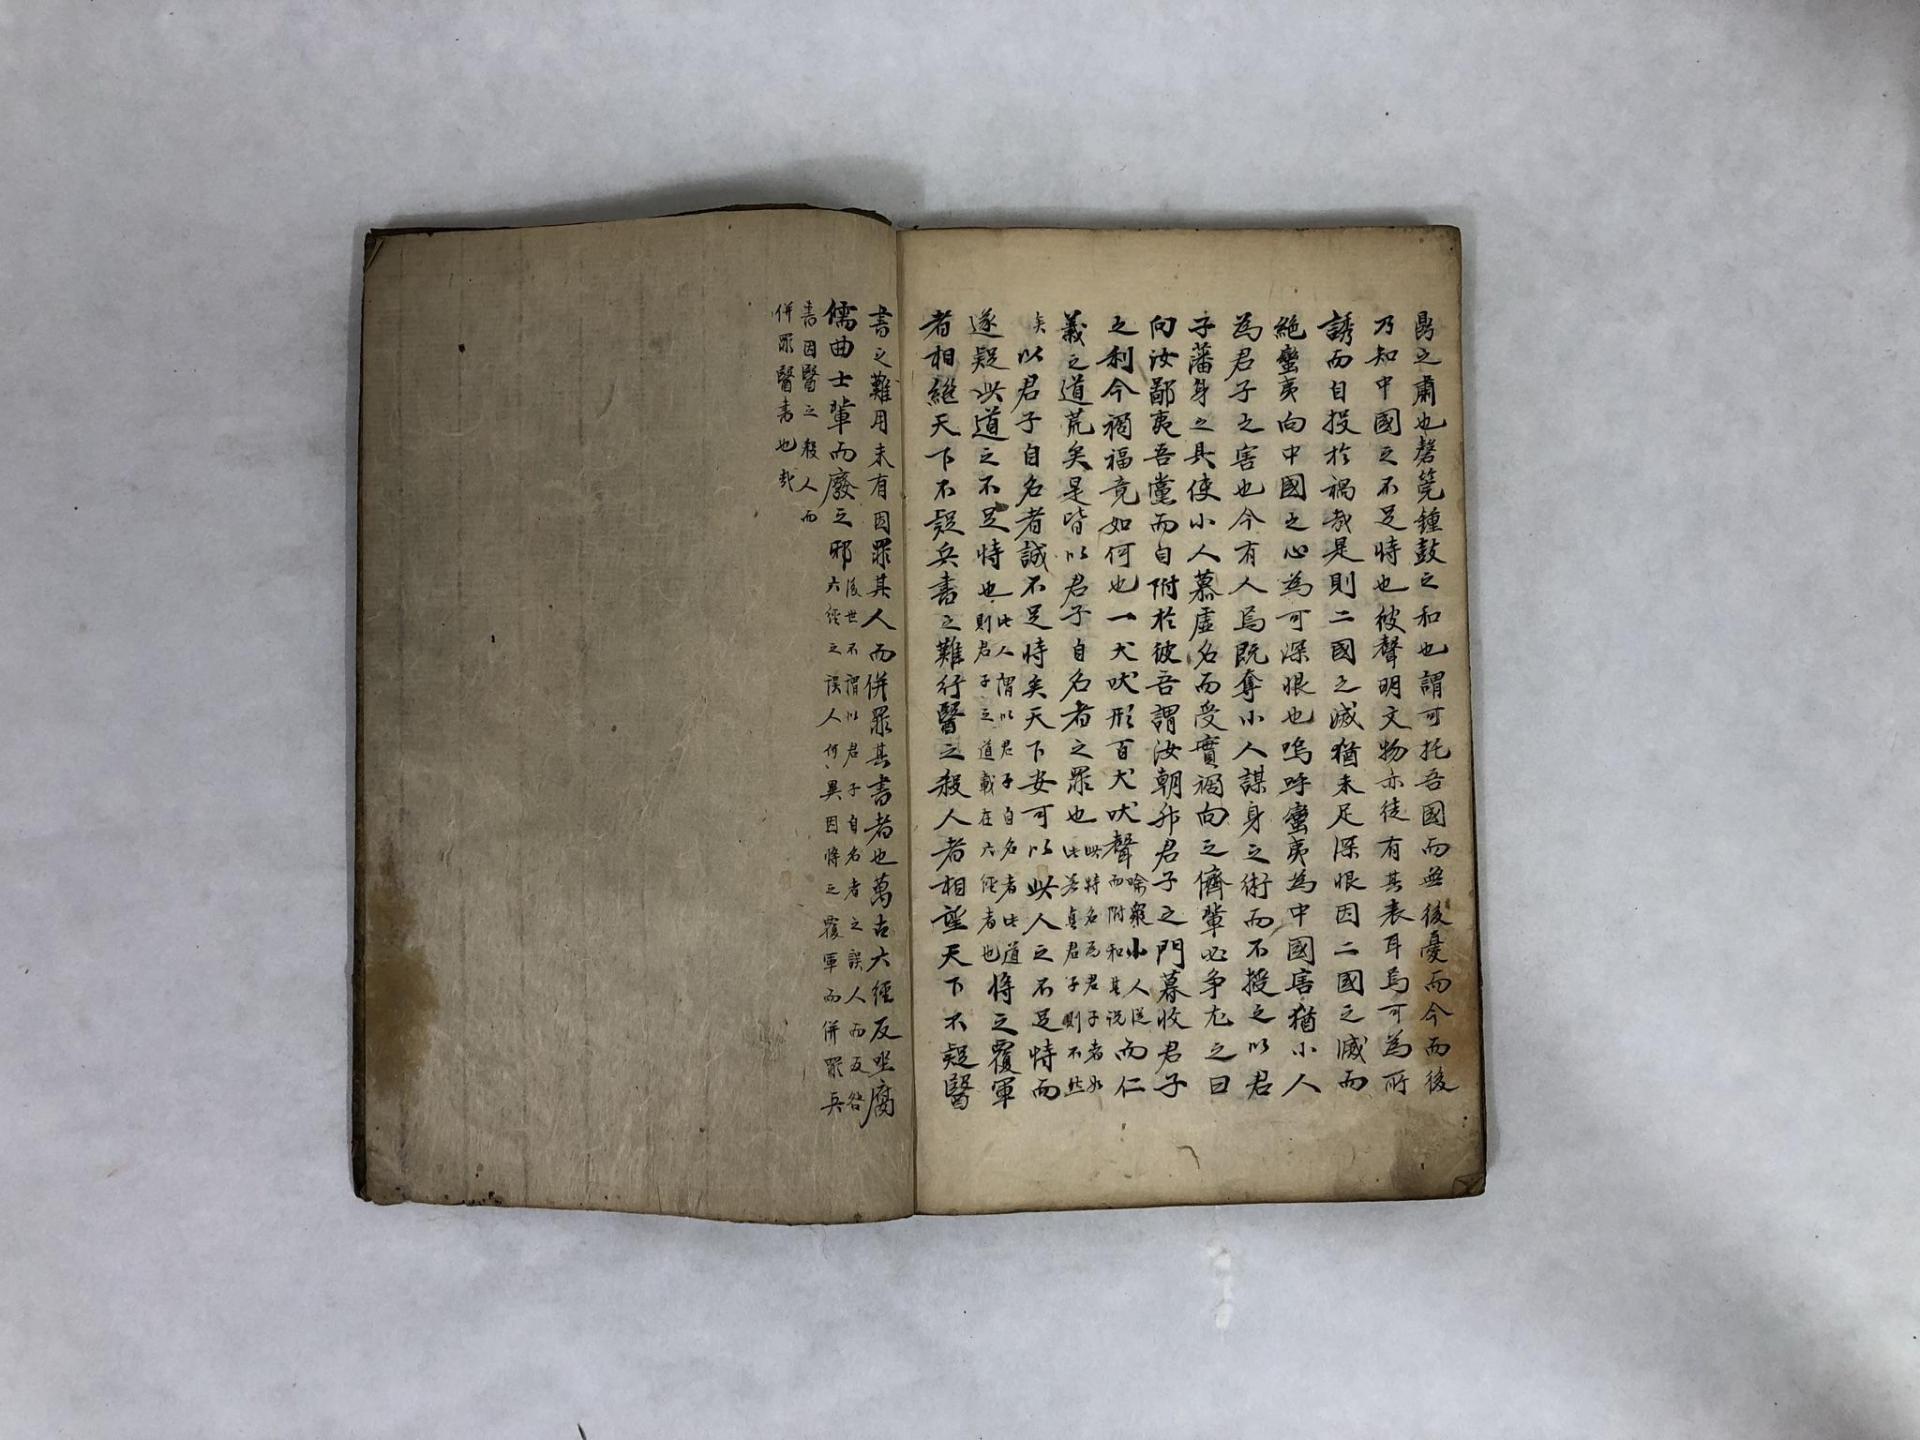 鼎之肅也磬筦鍾鼓之和也謂可托吾國而無後憂而今而後
乃知中國之不足恃也彼聲明文物亦徒有其表耳烏可為所
誘而自投於禍哉是則二國之滅猶未足深恨因二國之滅而
絕蠻夷向中國之心為可深恨也嗚呼蠻夷為中國害猶小人
為君子之害也今有人焉既奪小人謀身之術而不授之以君
子藩身之具使小人慕虛名而受實禍向之儕輩必爭尤之曰
向汝鄙夷吾黨而自附於彼吾謂汝朝升君子之門暮收君子
之利今禍福竟如何也一犬吠形百犬吠聲喻衆小人從而附和其說而仁
義之道荒矣是皆以君子自名者之罪也此特名為君子者如此若真君子則不然
矣以君子自名者誠不足恃矣天下安可以此人之不足恃而
遂疑此道之不足恃也此人謂以君子自名者此道則君子之道載在六經者也將之覆軍
者相繼天下不疑兵書之難行醫之殺人者相望天下不疑醫
書之難用未有因罪其人而併罪其書者也萬古六經反坐腐
儒曲士輩而廢之邪後世不謂以君子自名者之誤人而反咎六經之誤人何異因將之覆軍而併罪兵
書因醫之殺人而
併罪醫書也哉